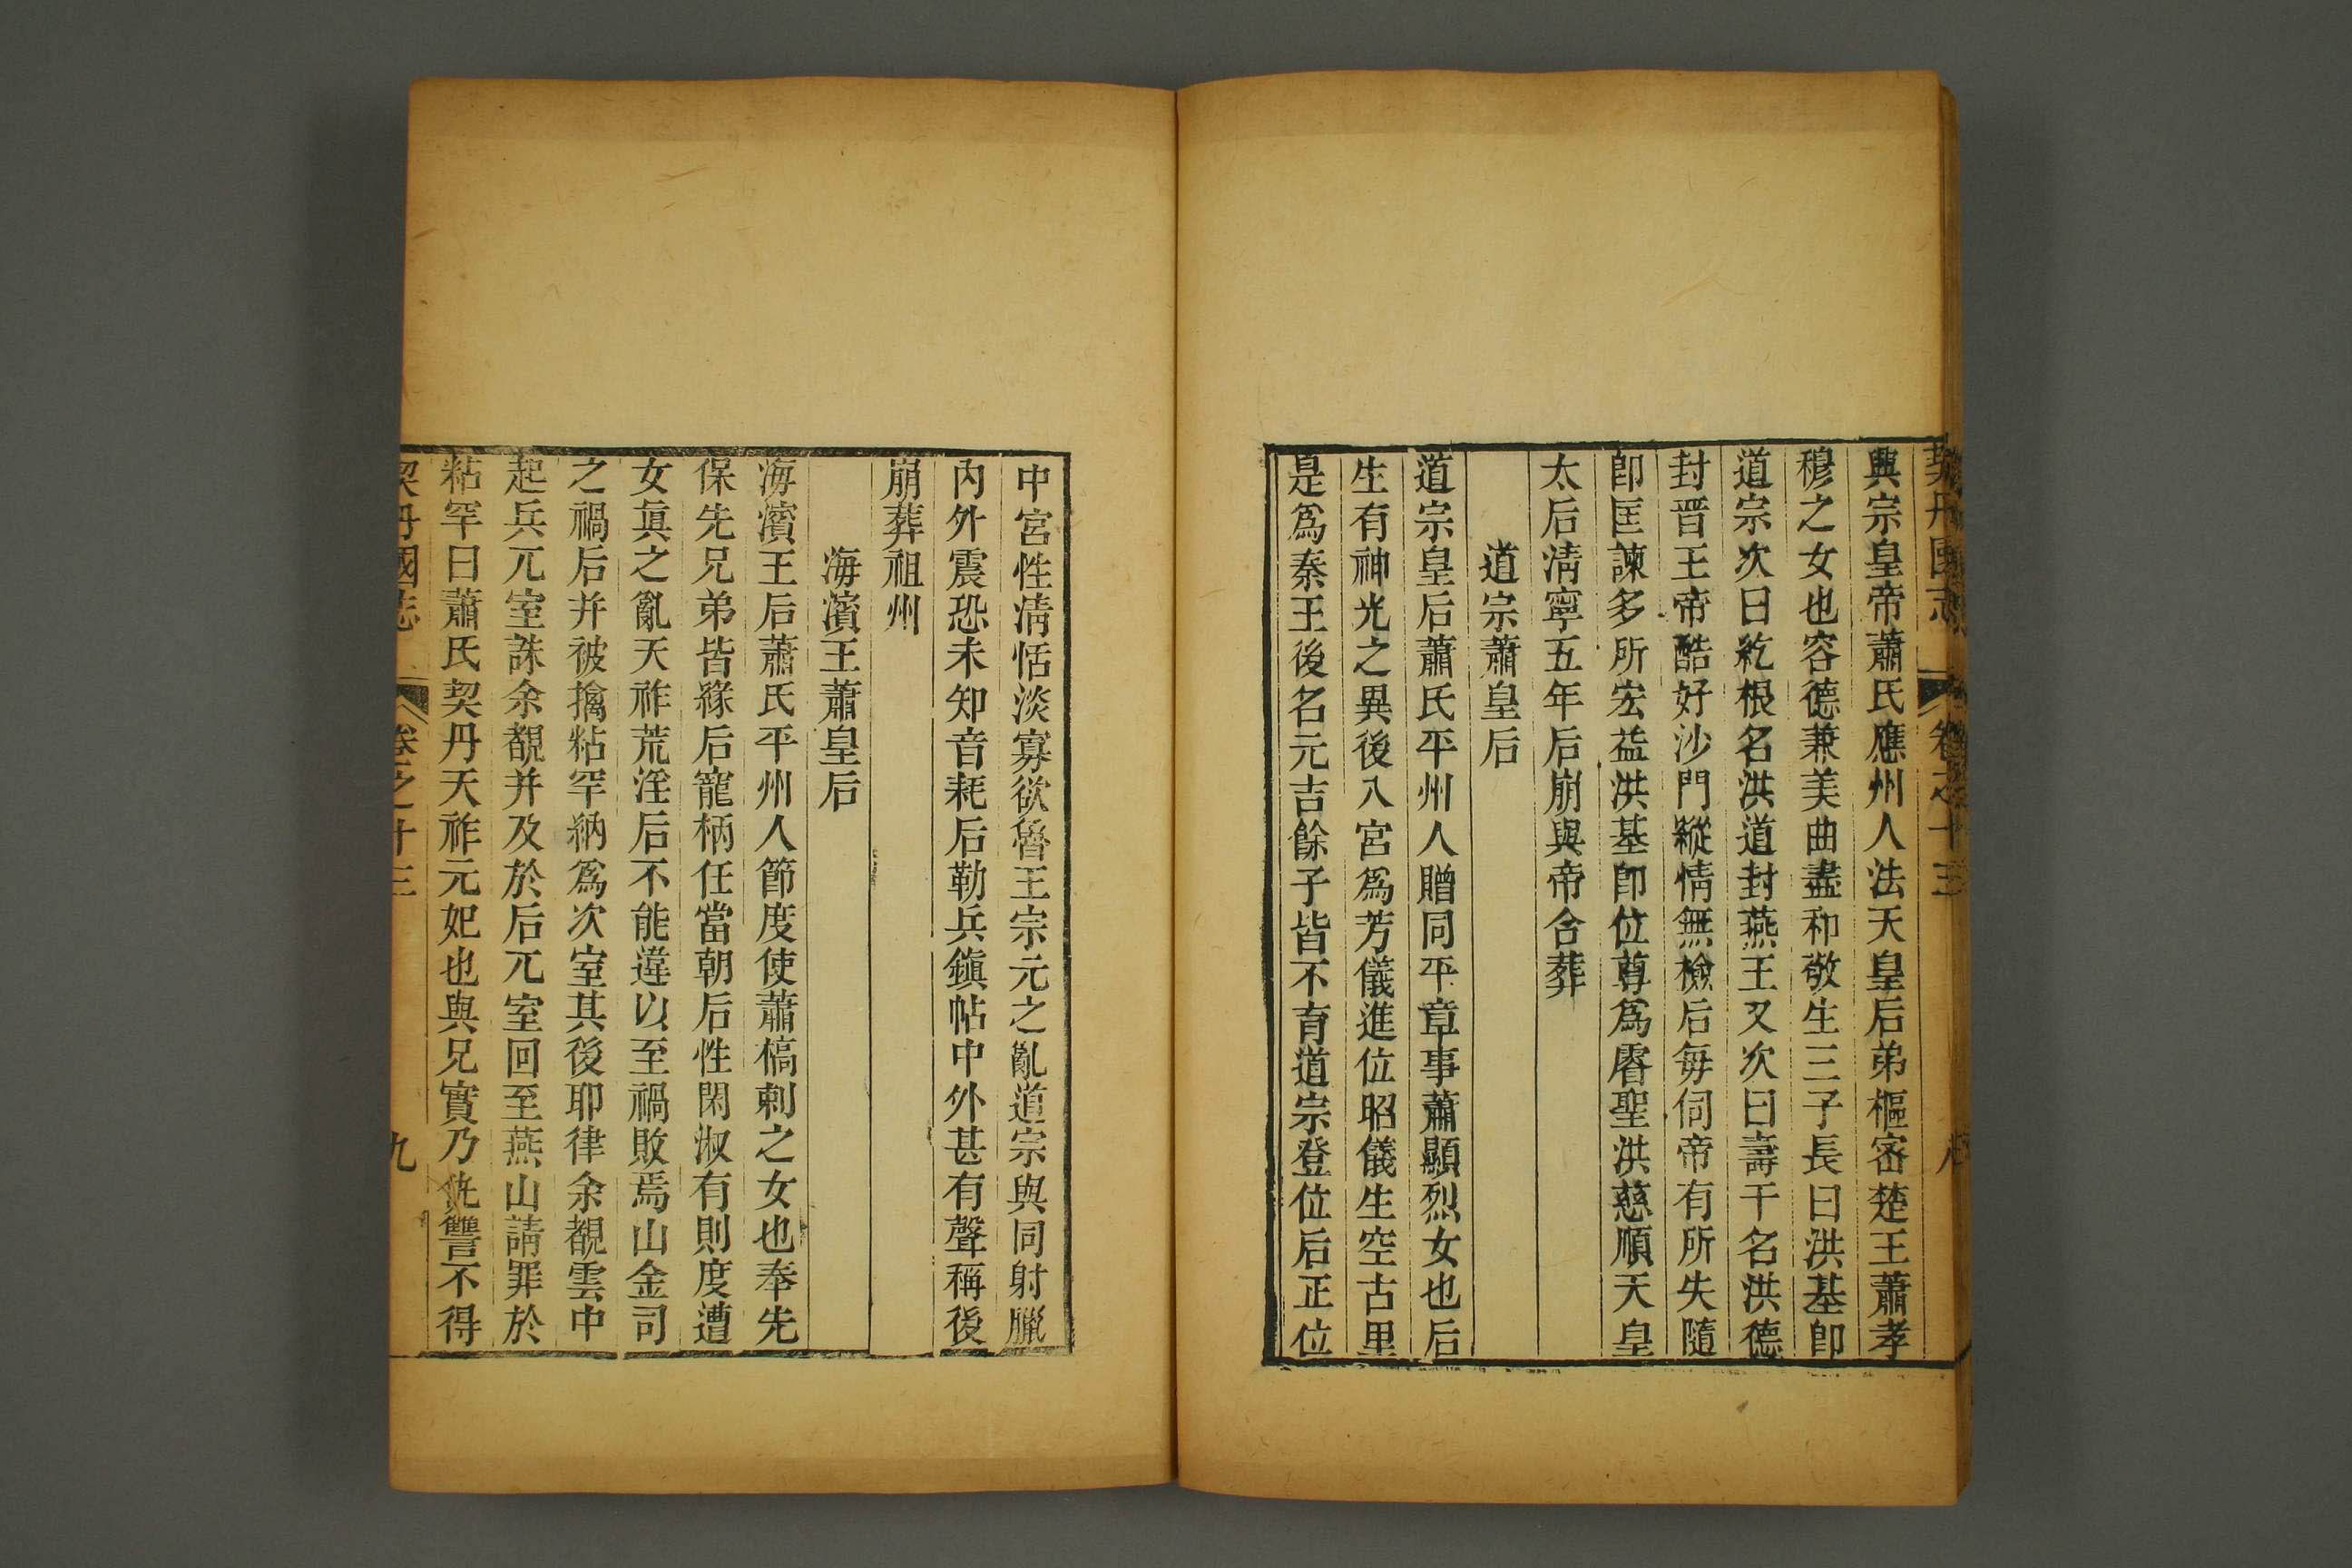 契丹國志 卷之十三 八
興宗皇帝蕭氏應州人法天皇后弟樞密楚王蕭孝
穆之女也容德兼美曲盡和敬生三子長曰洪基卽
道宗次曰紇根名洪道封燕王又次曰壽千名洪德
封晉王帝酷好沙門縱情無檢后每伺帝有所失隨
卽匡諫多所宏益洪基卽位尊爲睿聖洪慈順天皇
太后淸寧五年后崩與帝合葬
道宗蕭皇后
道宗皇后蕭氏平州人贈同平章事蕭顯烈女也后
生有神光之異後入宮爲芳儀進位昭儀生空古里
是爲秦王後名元吉餘子皆不育道宗登位后正位
中宮性淸恬淡寡欲魯王宗元之亂道宗與同射臘
內外震恐未知音耗后勒兵鎭帖中外甚有聲稱後
崩葬祖州
海濱王蕭皇后
海濱王后蕭氏平州人節度使蕭槁剌之女也奉先
保先兄弟皆緣后寵柄任當朝后性閑淑有則度遭
女眞之亂天祚荒淫后不能違以至禍敗焉山金司
之禍后并被擒粘罕納爲次室其後耶律余覩雲中
起兵兀室誅余覩并及於后兀室回至燕山請罪於
粘罕曰蕭氏契丹天祚元妃也與兄實乃仇讐不得
契丹國志 卷之十三 九